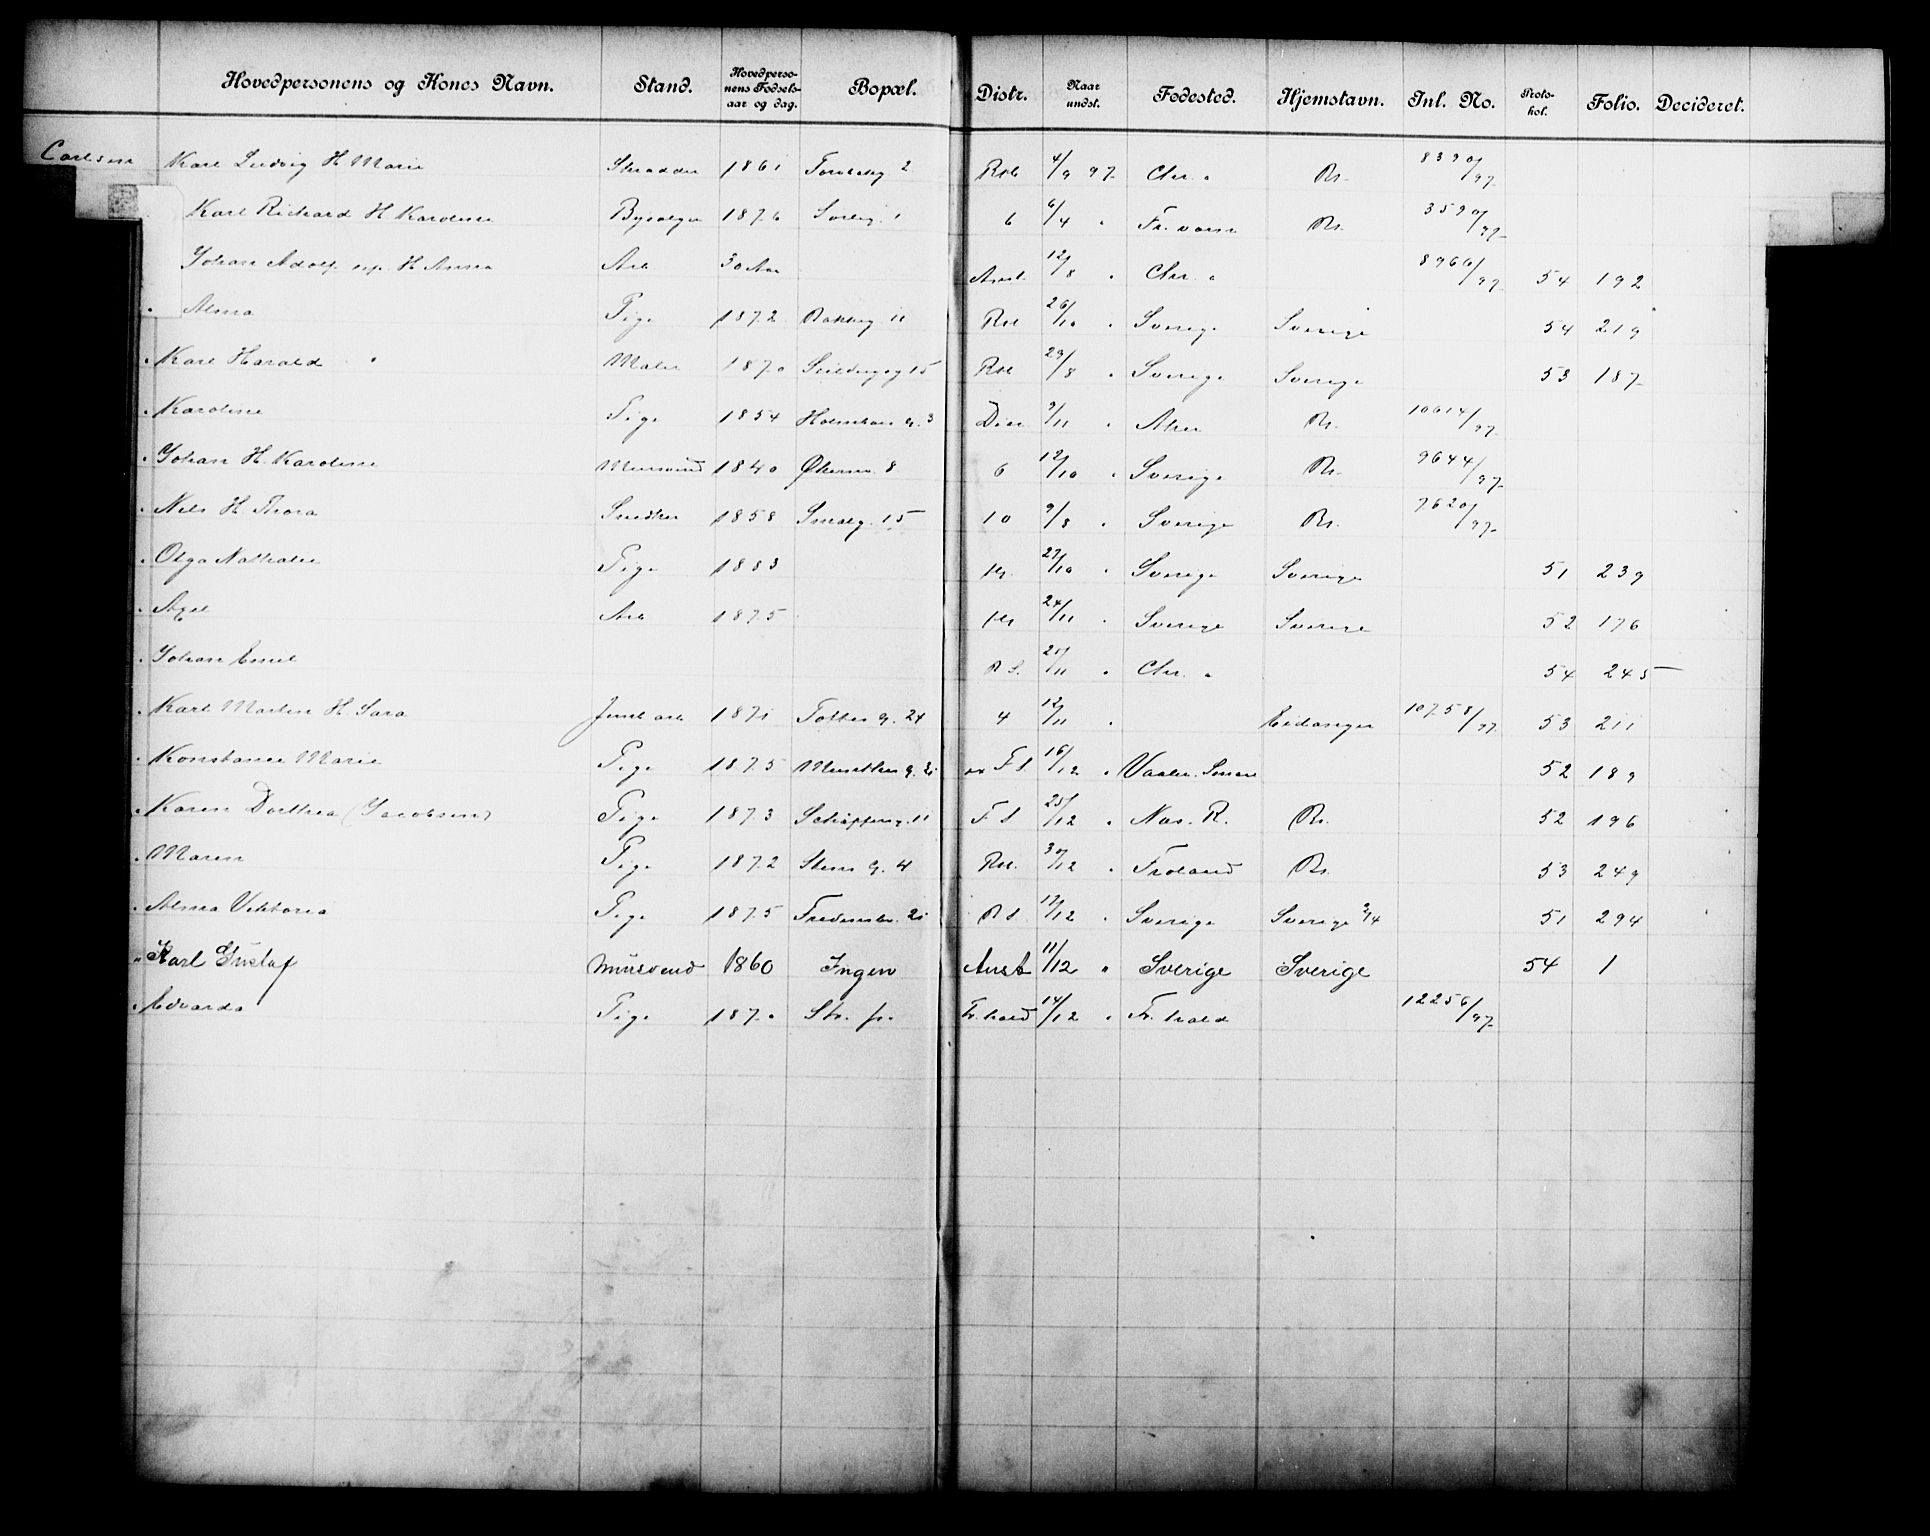 Hovedpersonens og Kones Navn. Stand. Hovedpersonens Fødselsaar og dag. Bopæl. Distr. Naar undst. Fødested. Hjemstavn. Inl. No. Protokol. Folio. Decideret.
Carlsen Karl Ludvig H Marie Skrædder 1861 2 4/9 97 Chr. Kr. 8390/97
Karl Richard H Karoline 1876 1 6 6/4 " Kr. 3590/97
Johan Adolf H Anna Arb 30 Aar 12/8 " Chr. " 8966/97 54 192
" Alma Pige 1872 Bakkeg 11 26/10 " Sverige Sverige 54 219
" Karl Harald " Maler 1870 Seildugsg 15 29/8 " Sverige Sverige 53 187
" Karoline Pige 1854 3 9/11 " Aker Kr. 10614/97
" Johan H. Karoline Mursvend 1840 Økernv. 8 6 12/10 " Sverige Kr. 9644/97
" Nils H. Thora Snedker 1858 Smalg. 15 10 9/8 " Sverige Kr. 7620/97
" Olga Nathalie Pige 1883 27/10 " Sverige Sverige 51 239
" Axel Arb 1875 24/11 " Sverige Sverige 52 176
" Johan Emil 11 " Chr. " 54 245
" Karl Martin H. Sara Jernb arb 1871 g. 24 4 12/11 " Eidanger 10758/97 53 211
" Konstance Marie Pige 1875 Munthes g. F S 16/12 " Vaaler 52 189
" Karen Dorthea (Jacobsen) Pige 1873 11 F S 12 " Nes. R. Kr. 52 196
" Maren Pige 1872 Stens g. 4 30/12 " Froland Kr. 53 249
" Alma Viktoria Pige 1875 R S 17/12 " Sverige Sverige 51 294
" Karl Gustaf Mursvend 1860 Ingen Anst 11/12 " Sverige Sverige 54 1
" Edvarda Pige 1870 Fr. hald 14/12 " Fr. hald 12256/97